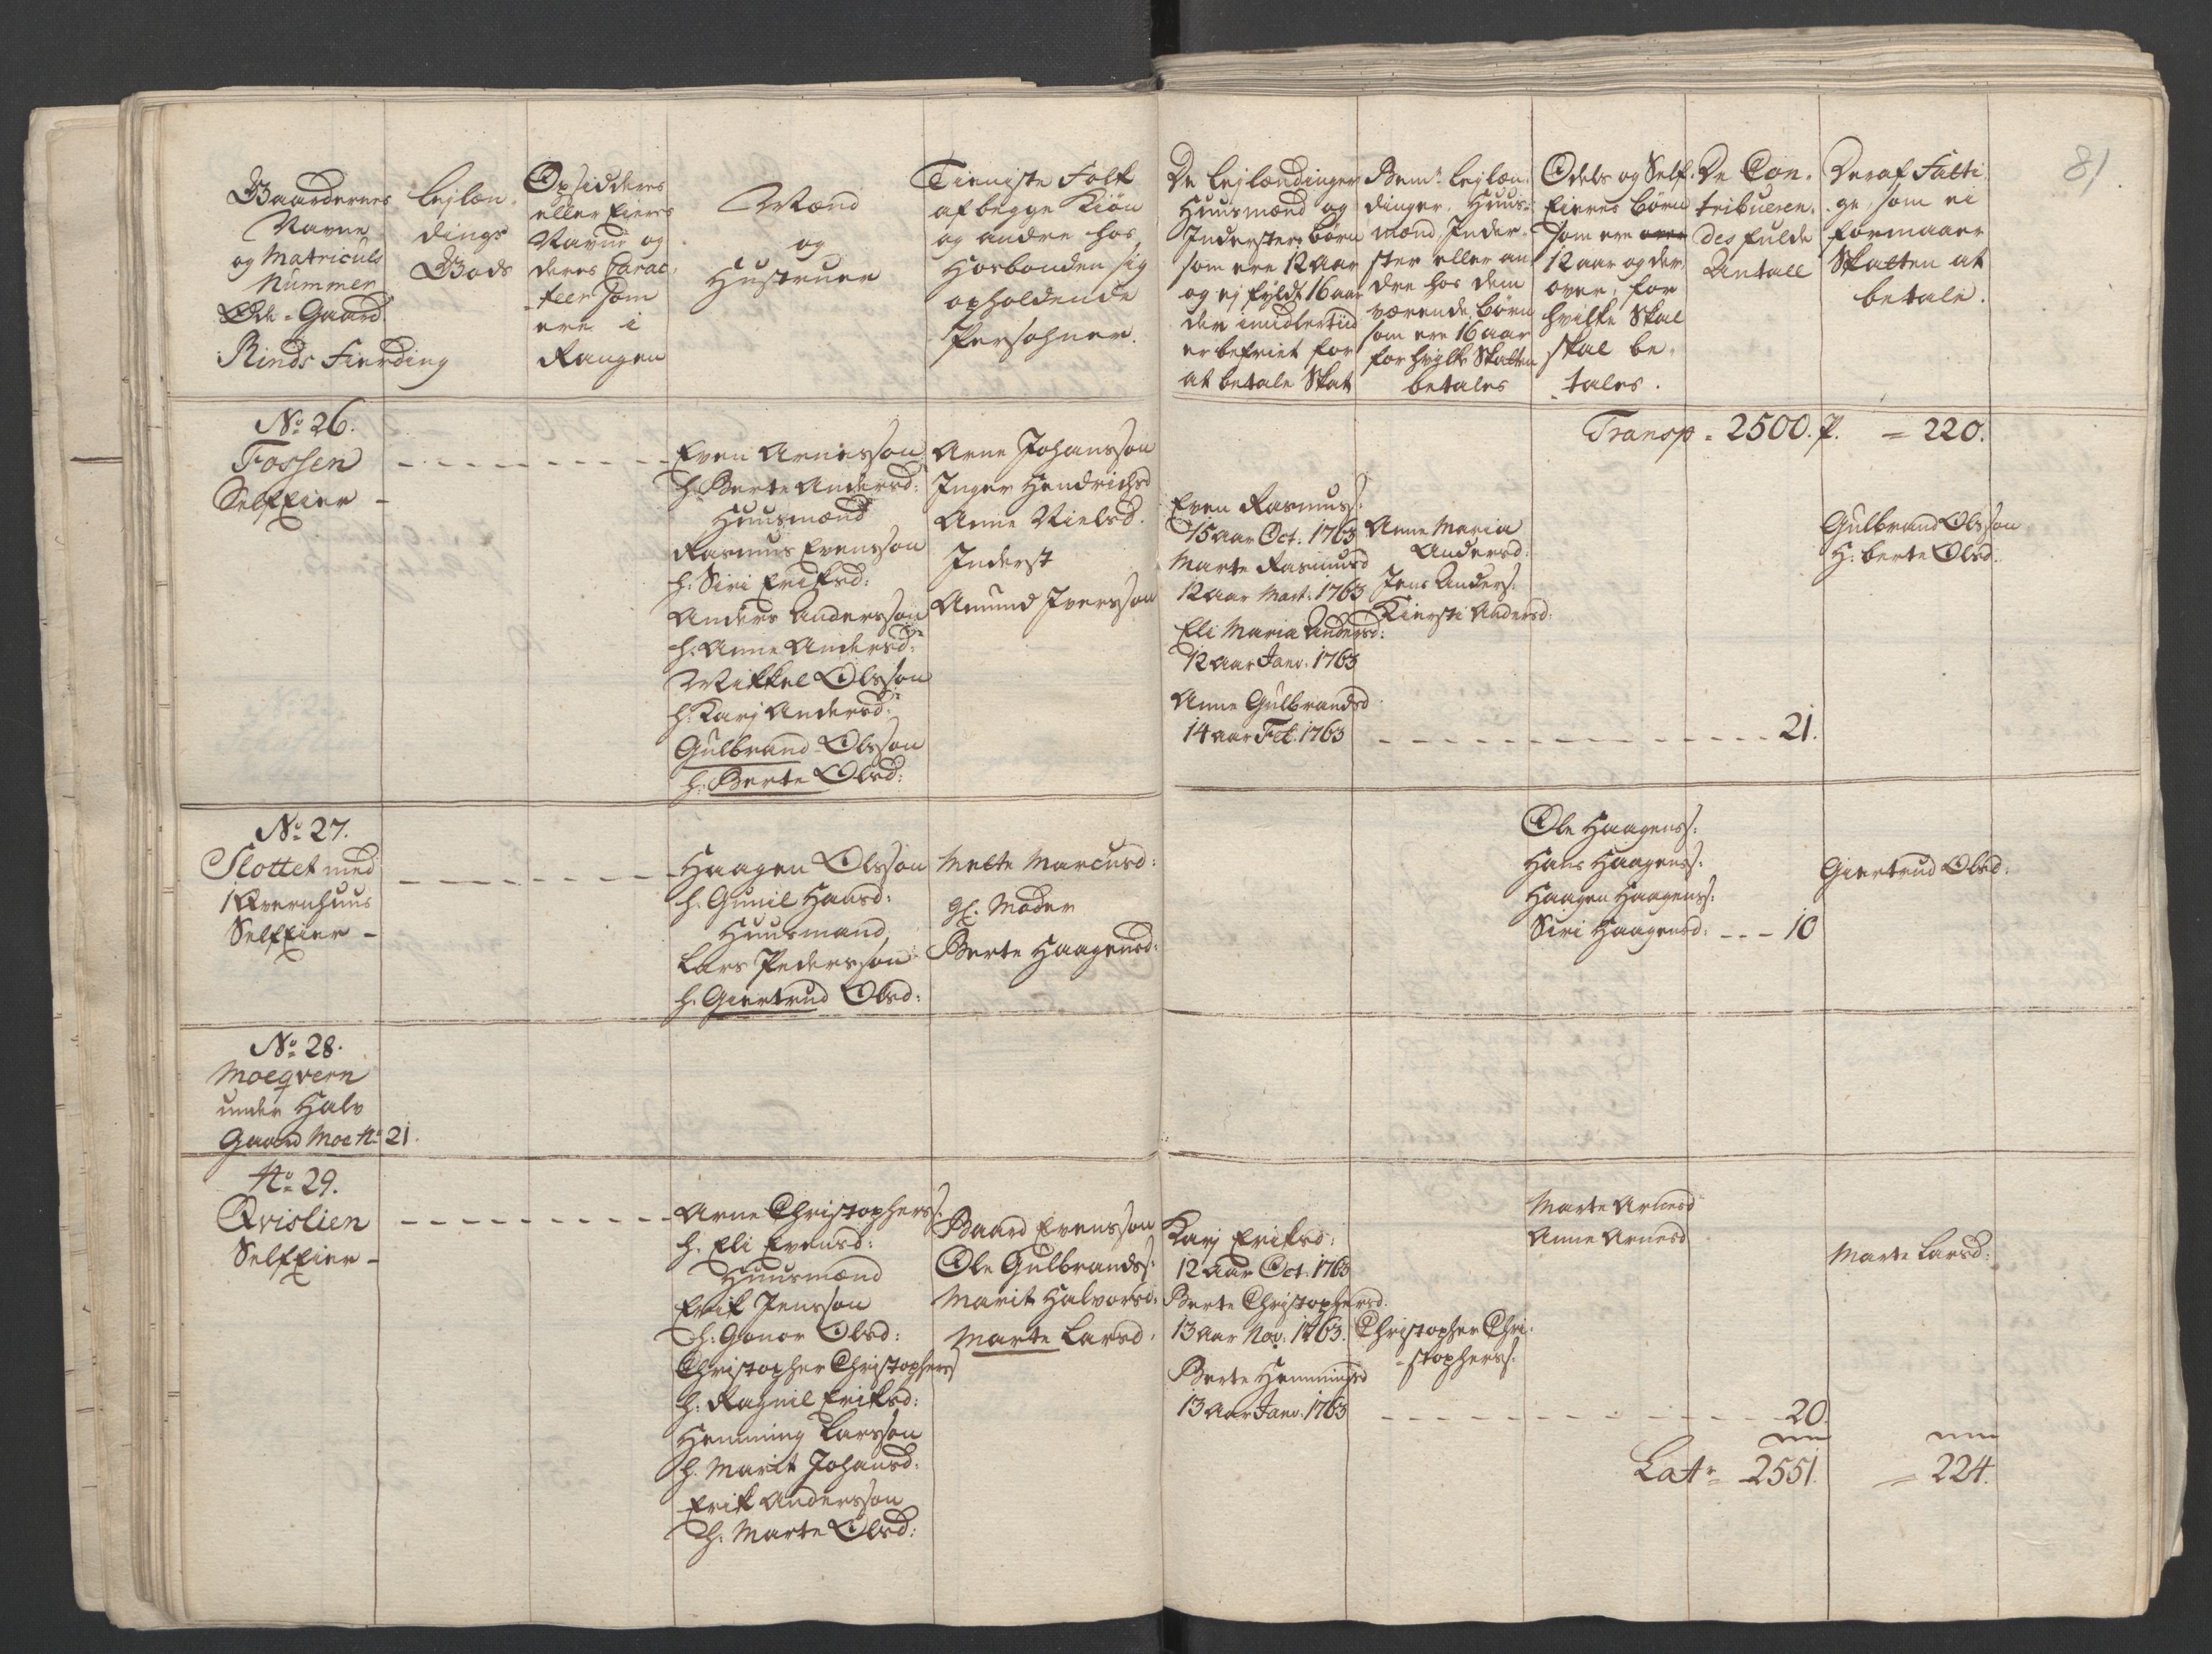 Gaardernes
Navne
og Matriculs
Nummer
Øde-Gaard.
Rinds Fierding
Lejlæn-
dings
Gods
Opsidderes
eller Eieres
Navne og
deres Carac-
teer som
ere i
Rangen
Mænd
og
Hustruer
Tieniste Folk
af begge Kiøn
og andre hos
Hosbonden sig
opholdende
Persohner.
De Lejlændinger
Huusmænd og
Inderster børn
som ere 12 Aar
og ej fyldt 16 aar
der imidlertiid
er befriet for
at betale Skat
Bemte Lejlæn-
dinger, Huus-
mænd Inder-
ster eller an-
dre hos dem
værende børn
som ere 16 aar
for hvilke Skatten
betales
Odels og Self-
Eieres børn
som ere
12 aar og der
over, for
hvilke Skal
skal be-
tales.
De Con-
tribueren-
des fulde
Antall
Deraf Fatti-
ge, som ei
formaaer
Skatten at
betale.
81.
Transp = 2500. P. = 220.
No 26.
Fossen
SelfEier -
Even Arnesson
h. Berte Andersd:
Huusmænd
Rasmus Evensson
h. Siri Eriksd:
Anders Andersson
h. Anne Andersd:
Mikkel Olsson
h. Karj Andersd:
Gulbrand Olsson
h. Berte Olsd:
Arne Johansson
Inger Hendrichsd
Anne Nielsd.
Inderst
Amund Iversson
Even Rasmuss:
15 aar Oct. 1763
Marte Rasmusd
12 aar Mart: 1763
Eli Maria Andersd:
12 aar Janv. 1763
Anne Gulbrandsd
14 aar Feb. 1763
Anne Maria
Andersd:
Jens Anders:
Kiersti Andersd:
21.
Gulbrand Olsson
H: berte Olsd.
No 27.
Slottet med
1 Qvernhuus
SelfEier -
Haagen Olsson
h. Gunil Hansd:
Huusmand,
Lars Pedersson
h. Giertrud Olsd:
Mette Marcusd:
gl. Moder
Berte Haagensd:
Ole Haagens:
Hans Haagens:
Haagen Haagens:
Siri Haagensd: - - - 10
Giertrud Olsd:
No 28.
Moeqvern
under Halv
Gaard Moe No 21.
No 29.
Qvislien
SelfEier -
Arne Christophers:
h. Eli Evensd:
Huusmænd
Erik Jensson
h. Gonor Olsd:
Christopher Christophers
h. Ragnil Eriksd:
Hemming Larsson
h. Marit Johansd:
Erik Andersson
h. Marte Olsd:
Baard Evensson
Ole Gulbrands:
Marit Halvorsd:
Marte Larsd.
Karj Eriksd:
12 aar Oct. 1763
Berte Christophersd.
13 aar Nov. 1763.
Berte Hemmingsd
13 aar Janv. 1763
Christopher Chri-
stophers:
Marte Arnesd
Anne Arnesd
20.
Marte Larsd:
Latr = 2551. = 224.